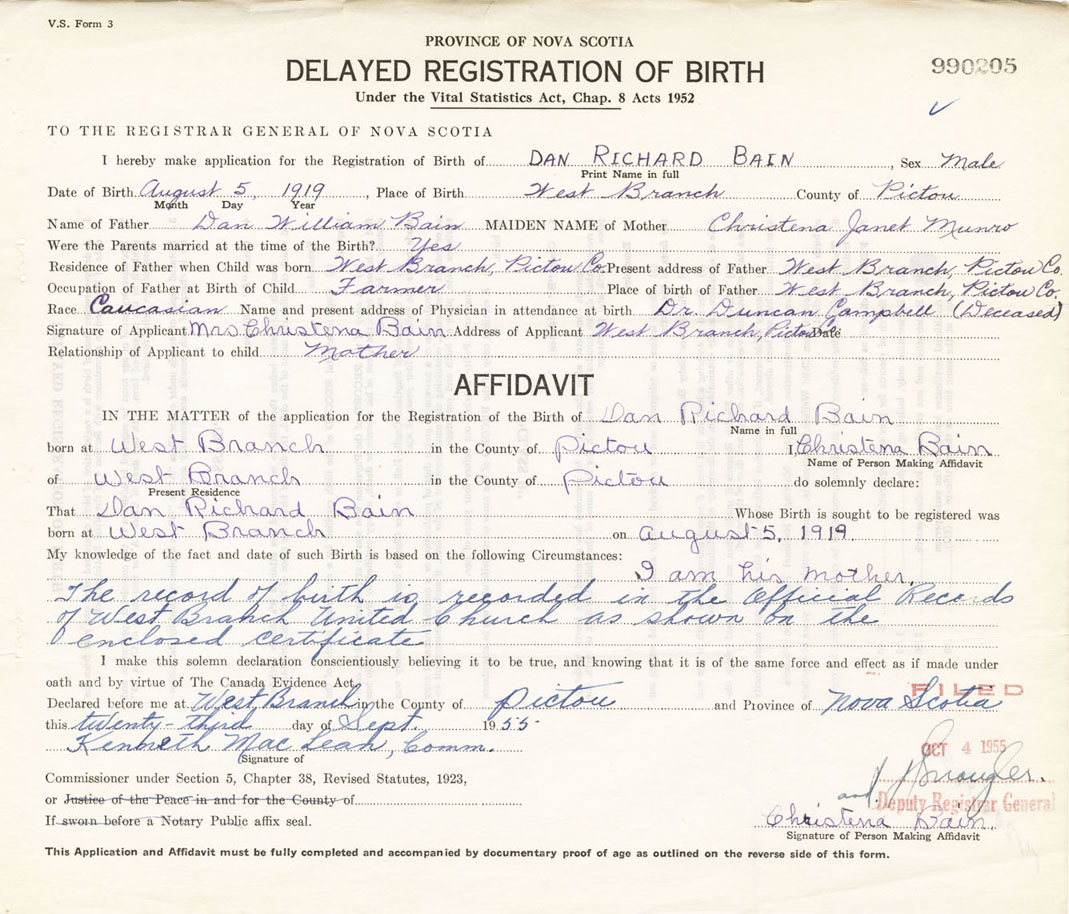 V.S. Form 3
PROVINCE OF NOVA SCOTIA
DELAYED REGISTRATION OF BIRTH
990205
Under the Vital Statistics Act, Chap. 8 Acts 1952
TO THE REGISTRAR GENERAL OF NOVA SCOTIA
I hereby make application for the Registration of Birth of DAN RICHARD BAIN, Sex Male
Print Name in full
Date of Birth August 5, 1919, Place of Birth West Branch County of Pictou
Month Day Year
Name of Father Dan William Bain MAIDEN NAME of Mother Christena Janet Munro
Were the Parents married at the time of the Birth? Yes
Residence of Father when Child was born West Branch, Pictou Co. Present address of Father West Branch, Pictou Co.
Occupation of Father at Birth of Child Farmer Place of birth of Father West Branch, Pictou Co.
Race Caucasian Name and present address of Physician in attendance at birth Dr. Duncan Campbell (Deceased)
Signature of Applicant Mrs Christena Bain Address of Applicant West Branch, Pictou Co Date
Relationship of Applicant to child Mother
AFFIDAVIT
IN THE MATTER of the application for the Registration of the Birth of Dan Richard Bain
Name in full
born at West Branch in the County of Pictou I, Christena Bain
Name of Person Making Affidavit
of West Branch in the County of Pictou do solemnly declare:
Present Residence
That Dan Richard Bain Whose Birth is sought to be registered was
born at West Branch on August 5, 1919
My knowledge of the fact and date of such Birth is based on the following Circumstances:
I am his mother.
The record of birth is recorded in the Official Records
of West Branch United Church as shown on the
enclosed certificate
I make this solemn declaration conscientiously believing it to be true, and knowing that it is of the same force and effect as if made under
oath and by virtue of The Canada Evidence Act.
FILED
Declared before me at West Branch in the County of Pictou and Province of Nova Scotia
this twenty-third day of Sept. 1955
Kenneth MacLean, Comm.
Signature of
OCT 4 1955
Commissioner under Section 5, Chapter 38, Revised Statutes, 1923,
or Justice of the Peace in and for the County of
Deputy Registrar General
If sworn before a Notary Public affix seal.
Christena Bain,
Signature of Person Making Affidavit
This Application and Affidavit must be fully completed and accompanied by documentary proof of age as outlined on the reverse side of this form.